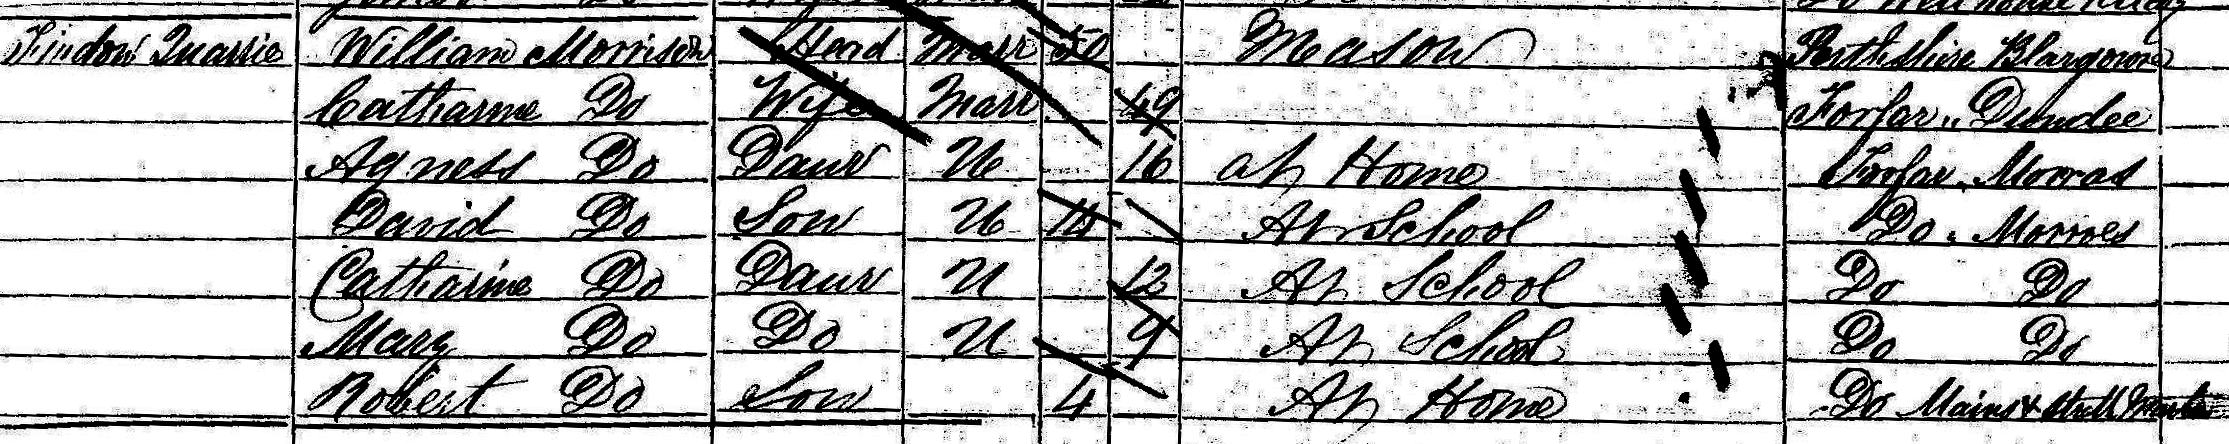 William Morrison Head Marr 50 Measow Perthshire Blargowrie
Catharine Do Wife Marr 49 Forfar Dundee
Agness Do Daur U 16 at Home Forfar Morras
David Do Son U 14 At School Do Morroes
Catharine Do Daur U 12 At School Do Do
Mary Do Do U 9 At School Do Do
Robert Do Son 4 At Home Do Mains &